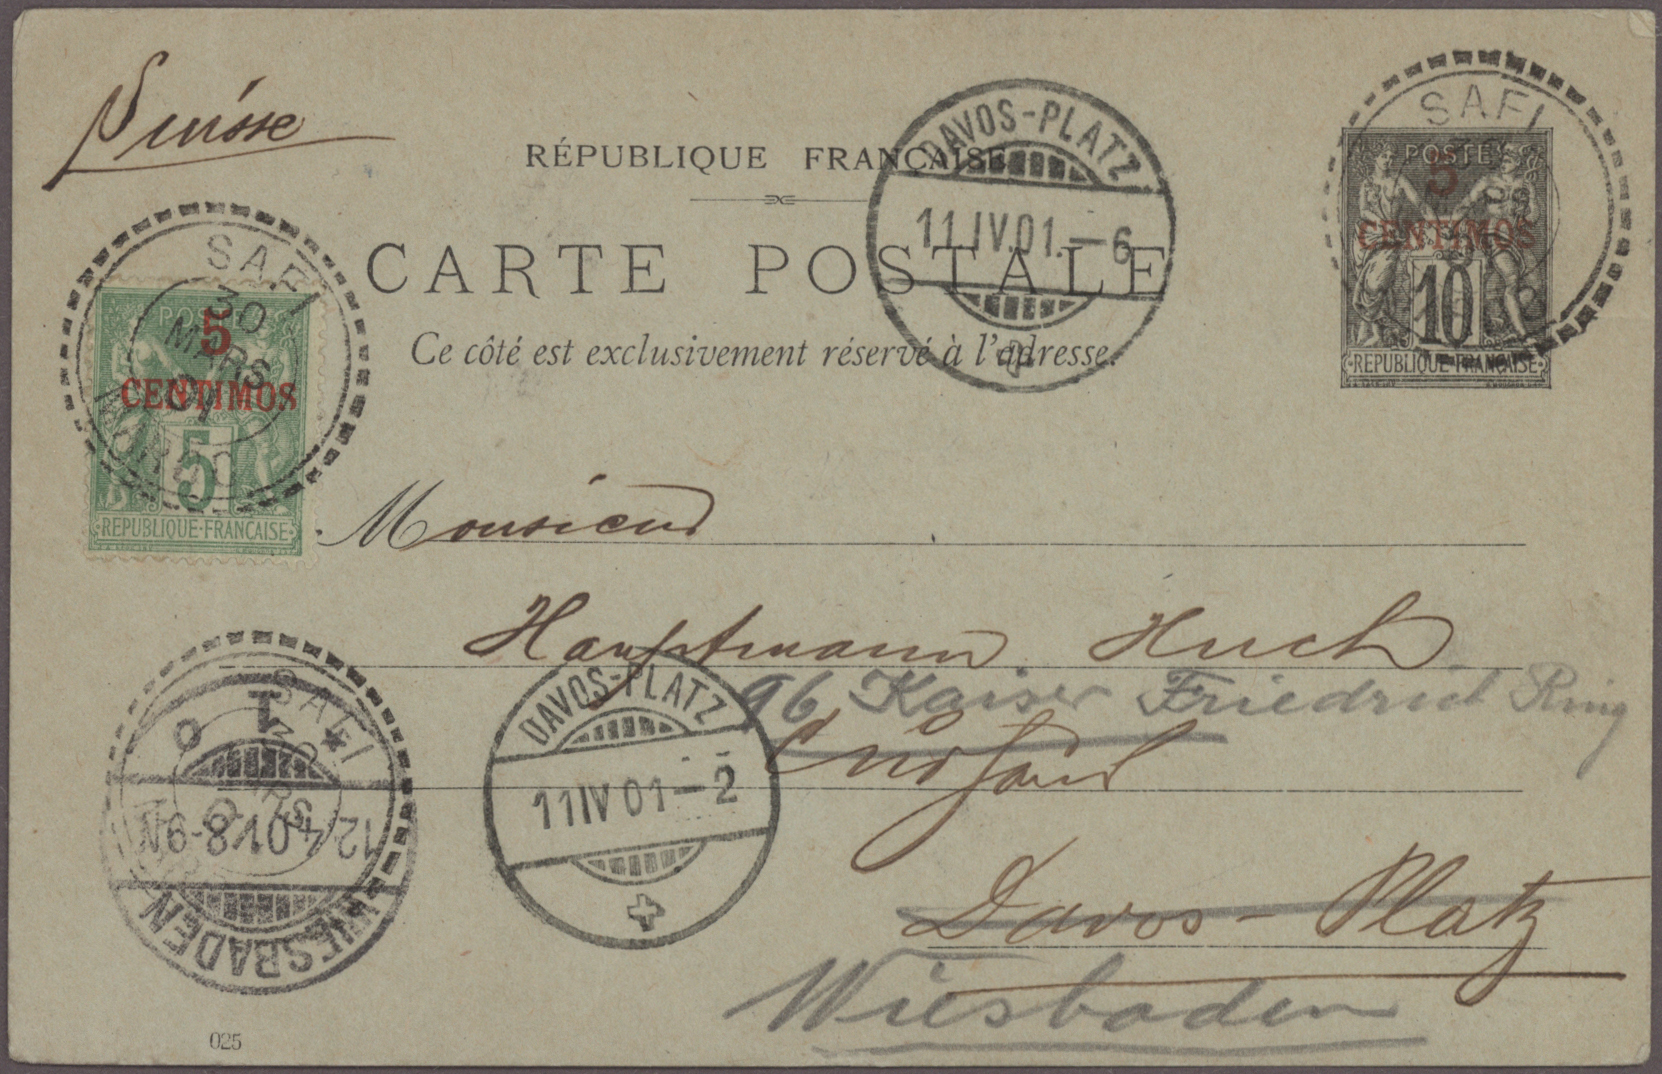 Suisse
RÉPUBLIQUE FRANÇAISE
CARTE POSTALE
Ce côté est exclusivement réservé à l'adresse.
DAVOS-PLATZ
11.IV.01.-6
SAFI
POSTE
5
CENTIMOS
10
REPUBLIQUE-FRANÇAISE
SAFI
30
MARS
01
MAROC
POSTE
5
CENTIMOS
5
REPUBLIQUE-FRANÇAISE
Monsieur
Hauptmann Huch
96 Kaiser Friedrich Ring
Davos-Platz
Wiesbaden
DAVOS-PLATZ
11 IV 01-2
SAFI
30
MARS
WIESBADEN
12.4.01.8-9N
025